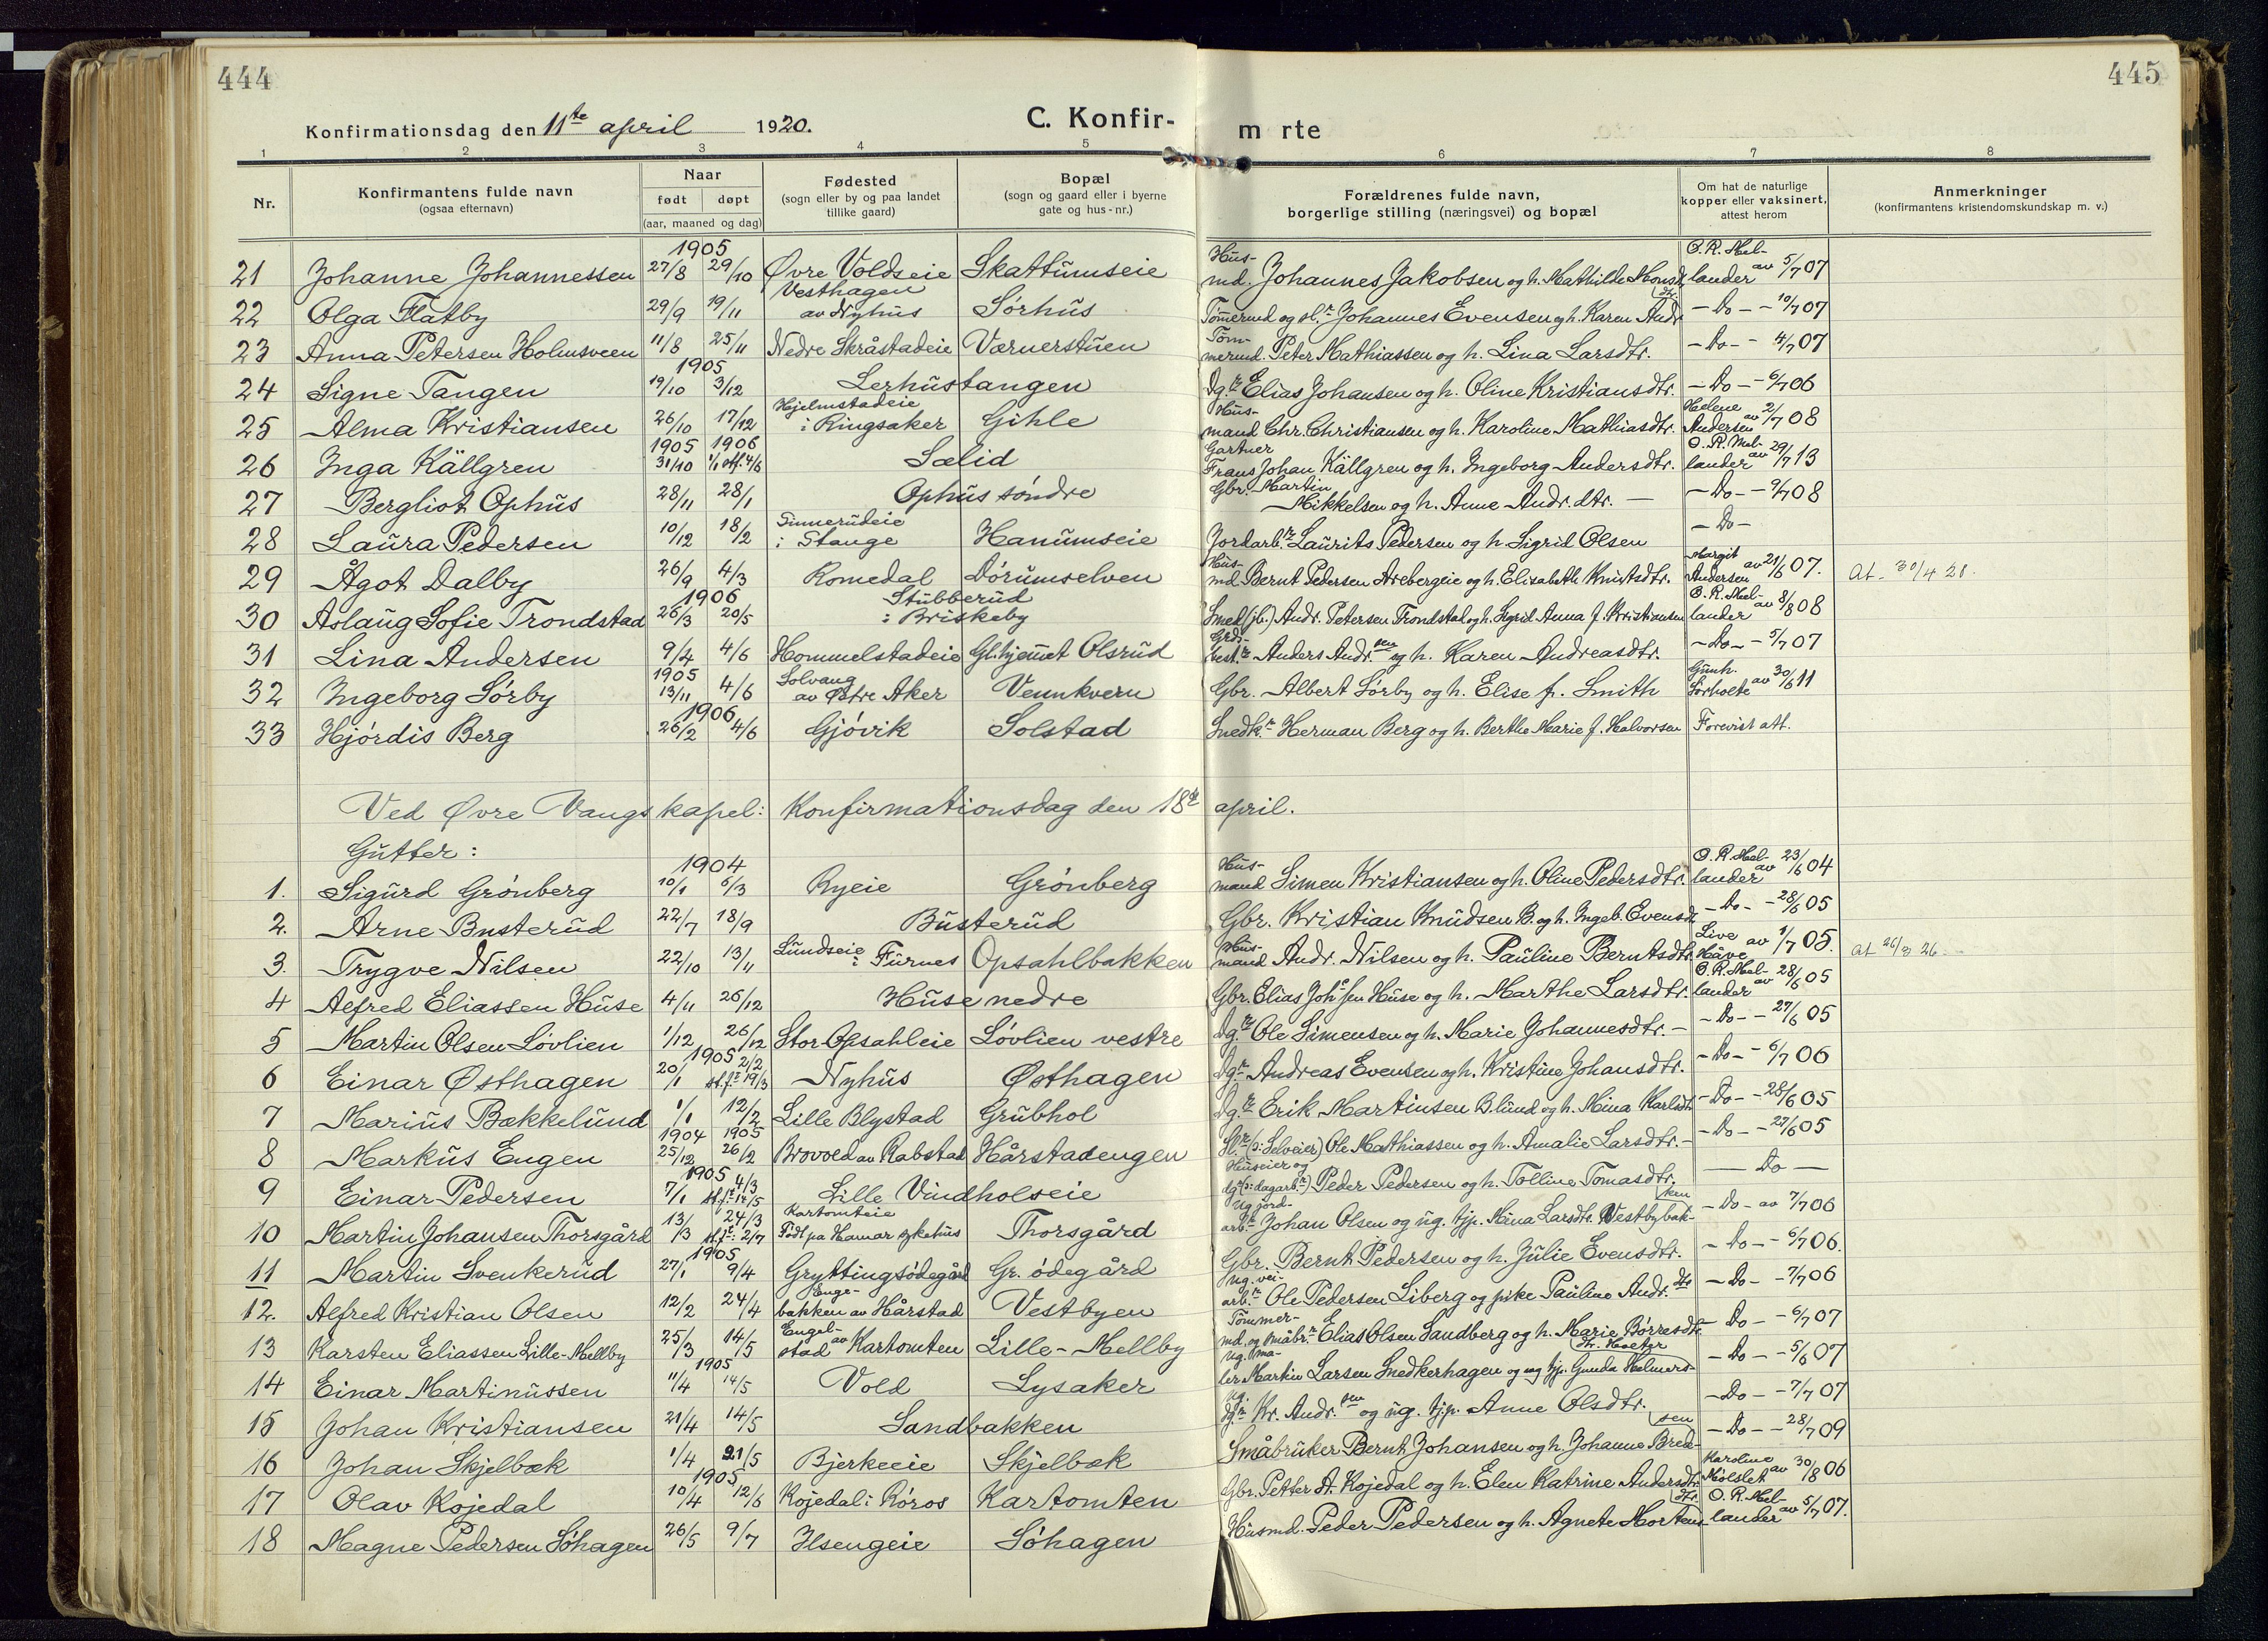 444
445
Konfirmationsdag den 11te april 1920.
C. Konfir-
m rte
1 2 3 4 5 6 7 8
Nr.
Konfirmantens fulde navn
(ogsaa efternavn)
Naar
født døpt
(aar, maaned og dag)
Fødested
(sogn eller by og paa landet
tillike gaard)
Bopæl
(sogn og gaard eller i byerne
gate og hus-nr.)
Forældrenes fulde navn,
borgerlige stilling (næringsvei) og bopæl
Om hat de naturlige
kopper eller vaksinert,
attest herom
Anmerkninger
(konfirmantens kristendomskundskap m. v.)
1905
21 Johanne Johannessen 27/8 29/10 Øvre Voldseie Skattumseie Husmd. Johannes Jakobsen og h. Mathilde Monsdtr. O. R. Mellander av 5/7 07
22 Olga Flatby 29/9 19/11 Vesthagen av Nyhus Sørhus Tømmermd og sl.r Johannes Evensen og h. Karen Andr. -Do- - 10/7 07
23 Anna Petersen Holmsveen 11/8 25/11 Nedre Skråstadeie Værnerstuen Tømmermd. Peter Mathiassen og h. Lina Larsdtr. -Do- - 4/7 07
1905
24 Signe Tangen 19/10 3/12 Lerhustangen Dg.r Elias Johansen og h. Oline Kristiansdtr. -Do- - 6/7 06
25 Alma Kristiansen 26/10 17/12 Hjelmstadeie i Ringsaker Gihle Husmand Chr. Christiansen og h. Karoline Mathiasdtr. Helene Andersen av 2/7 08
1905 1906
26 Inga Källgren 31/10 1/1 stf. 4/6 Sælid Gartner Frans Johan Källgren og h. Ingeborg Andersdtr. O. R. Mellander av 29/7 13
27 Bergliot Ophus 28/11 28/1 Ophus søndre Gbr. Martin Mikkelsen og h. Anne Andr.dtr. — -Do- - 9/7 08
28 Laura Pedersen 10/12 18/2 Finnerudeie i Stange Hanumseie Jordarb.r Laurits Pedersen og h. Sigrid Olsen -Do-
29 Ågot Dalby 26/9 4/3 Romedal Dørumselven Husmd. Bernt Pedersen Arebergeie og h. Elisabeth Knutsdtr. Margit Andersen av 21/6 07. At. 30/4 28.
1906
30 Aslaug Sofie Trondstad 26/3 20/5 Stubberud i Briskeby Smed (jb.) Andr. Petersen Trondstad og h. Sigrid Anna f. Kristiansen O. R. Mellander av 8/8 08
31 Lina Andersen 9/4 4/6 Hommelstadeie Gl.hjemmet Olsrud Grdbest.r Anders Andr.sen og h. Karen Andreasdtr. -Do- - 5/7 07
1905
32 Ingeborg Sørby 13/11 4/6 Solvang av Østre Aker Vennkvern Gbr. Albert Sørby og h. Elise f. Smith Gunh. Sørholte av 30/6 11
1906
33 Hjørdis Berg 26/2 4/6 Gjøvik Solstad Snedk.r Herman Berg og h. Berthe Marie f. Halvorsen Forevist att.
Ved Øvre Vangs kapel: Konfirmationsdag den 18de april.
Gutter:
1904
1. Sigurd Grønberg 10/1 6/3 Ryeie Grønberg Husmand Simen Kristiansen og h. Oline Pedersdtr. O. R. Mellander av 23/6 04
2. Arne Busterud 22/7 18/9 Busterud Gbr. Kristian Knudsen B. og h. Ingeb. Evensdt. -Do- - 28/6 05
3. Trygve Nilsen 22/10 13/11 Lundseie i Furnes Opsahlbakken Husmand Andr. Nilsen og h. Pauline Berntsdtr. Live Håve av 1/7 05. At 26/3 26.
4 Alfred Eliassen Huse 4/11 26/12 Huse nedre Gbr. Elias Joh.sen Huse og h. Marthe Larsdtr. O. R. Mellander av 28/6 05
5 Martin Olsen Løvlien 1/12 26/12 Stor Opsahleie Løvlien vestre Dg.r Ole Simensen og h. Marie Johannesdtr. - -Do- - 27/6 05
1905
6 Einar Østhagen 20/1 2/2 st.f. 19/3 Nyhus Østhagen Dg.r Andreas Evensen og h. Kristine Johansdtr. -Do- - 6/7 06
7 Marius Bækkelund 1/1 12/2 Lille Blystad Grubhol Dg.r Erik Martinsen B.lund og h. Mina Karlsdt. -Do- - 28/6 05
1904 1905
8 Markus Engen 25/12 26/2 Brovold av Rabstad Hårstadengen Sl.r (o: Selveier) Ole Mathiassen og h. Amalie Larsdtr. - -Do- - 27/6 05
1905
9 Einar Pedersen 7/1 4/3 st.f. 14/5 Lille Vindholseie Huseier og dg.r (o: dagarb.r) Peder Pedersen og h. Tolline Tomasdtr. — Do —
10 Martin Johansen Thorsgård 13/3 24/3 st.f. 2/7 Kartomteie Født på Hamar sykehus Thorsgård Ug. jordarb.r Johan Olsen og ug. tjp. Mina Larsdtr. Vestbybakken -Do- av 7/7 06
1905
11 Martin Svenkerud 27/1 9/4 Gryttingsødegård Gr. ødegård Gbr. Bernt Pedersen og h. Julie Evensdtr. -Do- - 6/7 06.
12. Alfred Kristian Olsen 12/2 24/4 Engebakken av Hårstad Vestbyen Ug. veiarb.r Ole Pedersen Liberg og pike Pauline Andr.dtr -Do- - 7/7 06
13 Karsten Eliassen Lille-Mellby 25/3 14/5 Engelstad av Kartomten Lille-Mellby Tømmermd. og småbr.r Elias Olsen Sandberg og h. Marie Børresdtr. -Do- - 6/7 07
1905
14 Einar Martinussen 11/4 14/5 Vold Lysaker Ug. maler Martin Larsen Snedkerhagen og ug tjp. Gunda Helmersdtr. -Do- - 5/6 07
15 Johan Kristiansen 21/4 14/5 Sandbakken Ug. dg.r Kr. Andr.sen og ug. tjp. Anne Olsdtr. -Do- - 7/7 07
16 Johan Skjelbæk 1/4 21/5 Bjerkeeie Skjelbæk Småbruker Bernt Johansen og h. Johanne Bredesen -Do- - 28/7 09
1905
17 Olav Kojedal 10/4 12/6 Kojedal i Røros Kartomten Gbr. Petter A. Kojedal og h. Elen Katrine Andersdtr. Karoline Mølslet av 30/8 06
18 Magne Pedersen Søhagen 26/5 9/7 Ilsengeie Søhagen Husmd. Peder Pedersen og h. Agnete Mortensdtr. O. R. Mellander av 5/7 07.